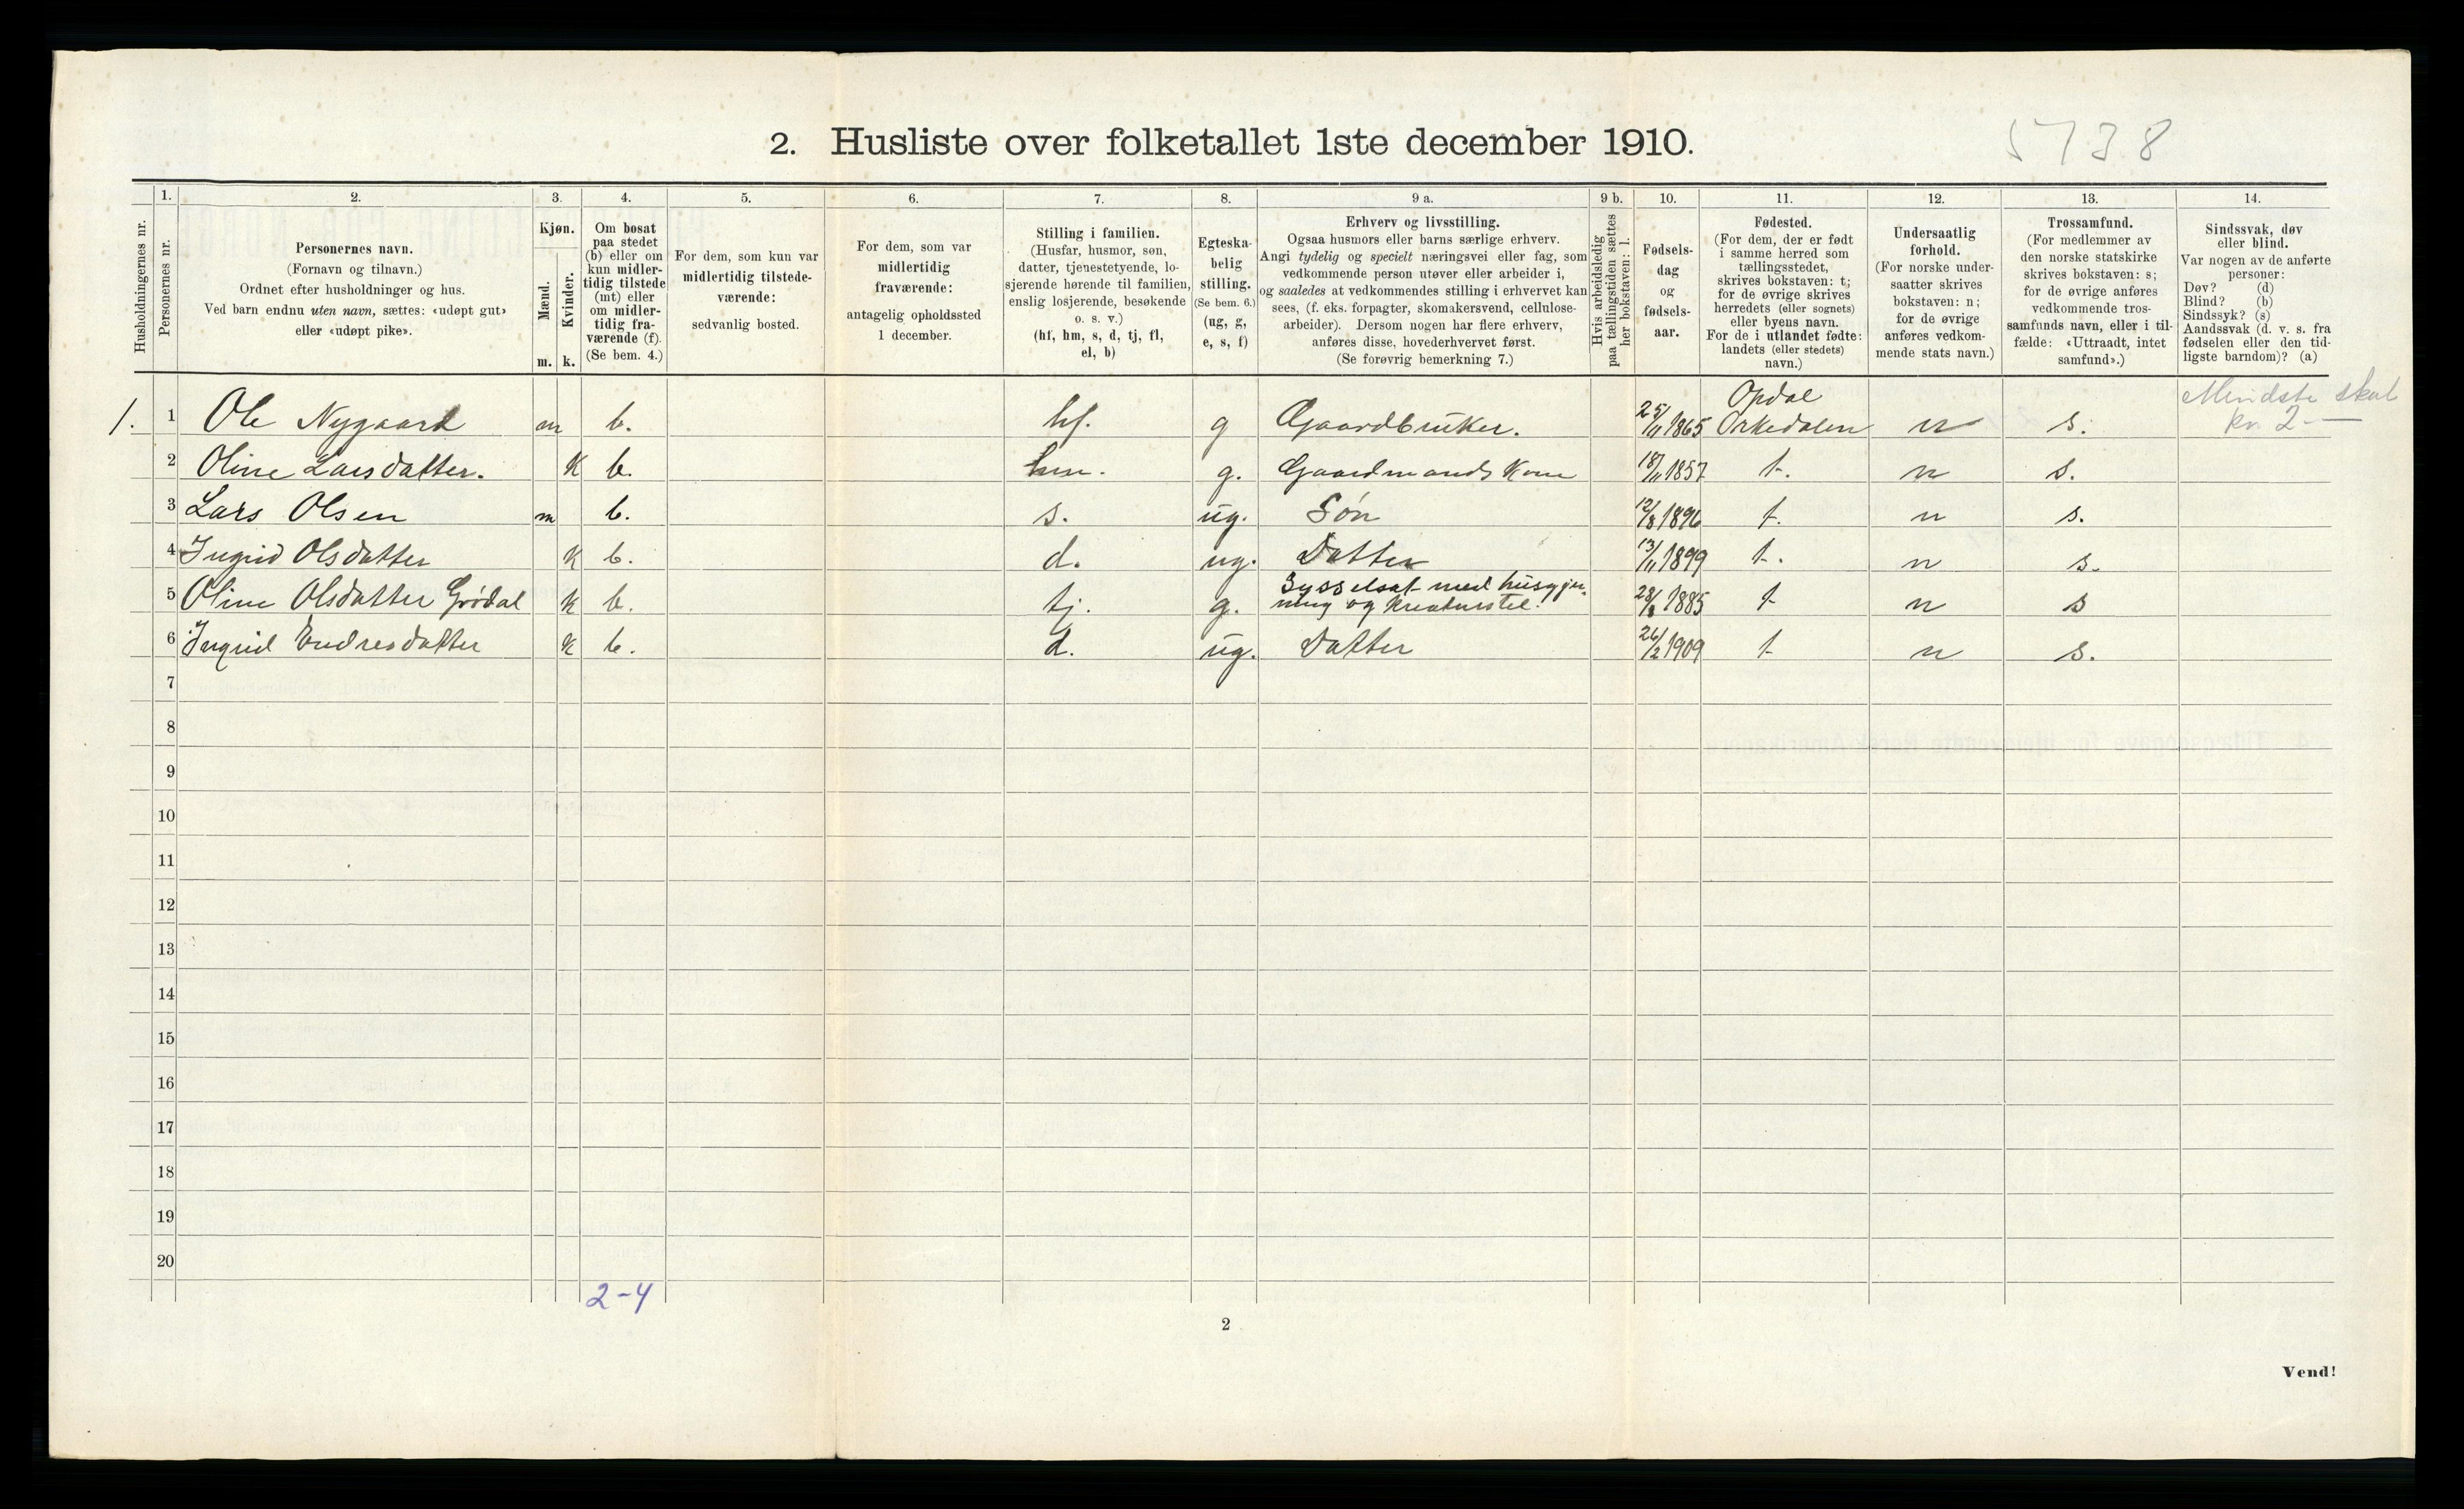 2. Husliste over folketallet 1ste december 1910.
5738
1. 2. 3. 4. 5. 6. 7. 8. 9 a. 9 b. 10. 11. 12. 13. 14.
Husholdningernes nr.
Personernes nr.
Personernes navn.
(Fornavn og tilnavn.)
Ordnet efter husholdninger og hus.
Ved barn endnu uten navn, sættes: «udøpt gut»
eller «udøpt pike».
Kjøn.
Mænd.
Kvinder.
m. k.
Om bosat
paa stedet
(b) eller om
kun midler-
tidig tilstede
(mt) eller
om midler-
tidig fra-
værende (f).
(Se bem. 4.)
For dem, som kun var
midlertidig tilstede-
værende:
sedvanlig bosted.
For dem, som var
midlertidig
fraværende:
antagelig opholdssted
1 december.
Stilling i familien.
(Husfar, husmor, søn,
datter, tjenestetyende, lo-
sjerende hørende til familien,
enslig losjerende, besøkende
o. s. v.)
(hf, hm, s, d, tj, fl,
el, b)
Egteska-
belig
stilling.
(Se bem. 6.)
(ug, g,
e, s, f)
Erhverv og livsstilling.
Ogsaa husmors eller barns særlige erhverv.
Angi tydelig og specielt næringsvei eller fag, som
vedkommende person utøver eller arbeider i,
og saaledes at vedkommendes stilling i erhvervet kan
sees, (f. eks. forpagter, skomakersvend, cellulose-
arbeider). Dersom nogen har flere erhverv,
anføres disse, hovederhvervet først.
(Se forøvrig bemerkning 7.)
Hvis arbeidsledig
paa tællingstiden sættes
her bokstaven: l.
Fødsels-
dag
og
fødsels-
aar.
Fødested.
(For dem, der er født
i samme herred som
tællingsstedet,
skrives bokstaven: t;
for de øvrige skrives
herredets (eller sognets)
eller byens navn.
For de i utlandet fødte:
landets (eller stedets)
navn.)
Undersaatlig
forhold.
(For norske under-
saatter skrives
bokstaven: n;
for de øvrige
anføres vedkom-
mende stats navn.)
Trossamfund.
(For medlemmer av
den norske statskirke
skrives bokstaven: s;
for de øvrige anføres
vedkommende tros-
samfunds navn, eller i til-
fælde: «Uttraadt, intet
samfund».)
Sindssvak, døv
eller blind.
Var nogen av de anførte
personer:
Døv? (d)
Blind? (b)
Sindssyk? (s)
Aandssvak (d. v. s. fra
fødselen eller den tid-
ligste barndom)? (a)
Mindste skat
kr. 2 —
1. 1 Ole Nygaard m b. hf. g Gaardbruker. 25/11 1865 Opdal Orkedalen n s.
2 Oline Larsdatter. K b. hm. g. Gaardmands Kone 18/11 1857 t. n s.
3 Lars Olsen m b. s. ug. Søn 12/8 1896 t. n s.
4 Ingrid Olsdatter K b. d. ug. Datter 13/11 1899 t. n s.
5 Oline Olsdatter Grødal K b. tj. g. Sysselsat med husgjer-
ning og kreaturstel. 28/8 1885 t n s
6 Ingrid Endresdatter K b. d. ug. Datter 26/2 1909 t n s.
7
8
9
10
11
12
13
14
15
16
17
18
19
20
2-4
2
Vend!